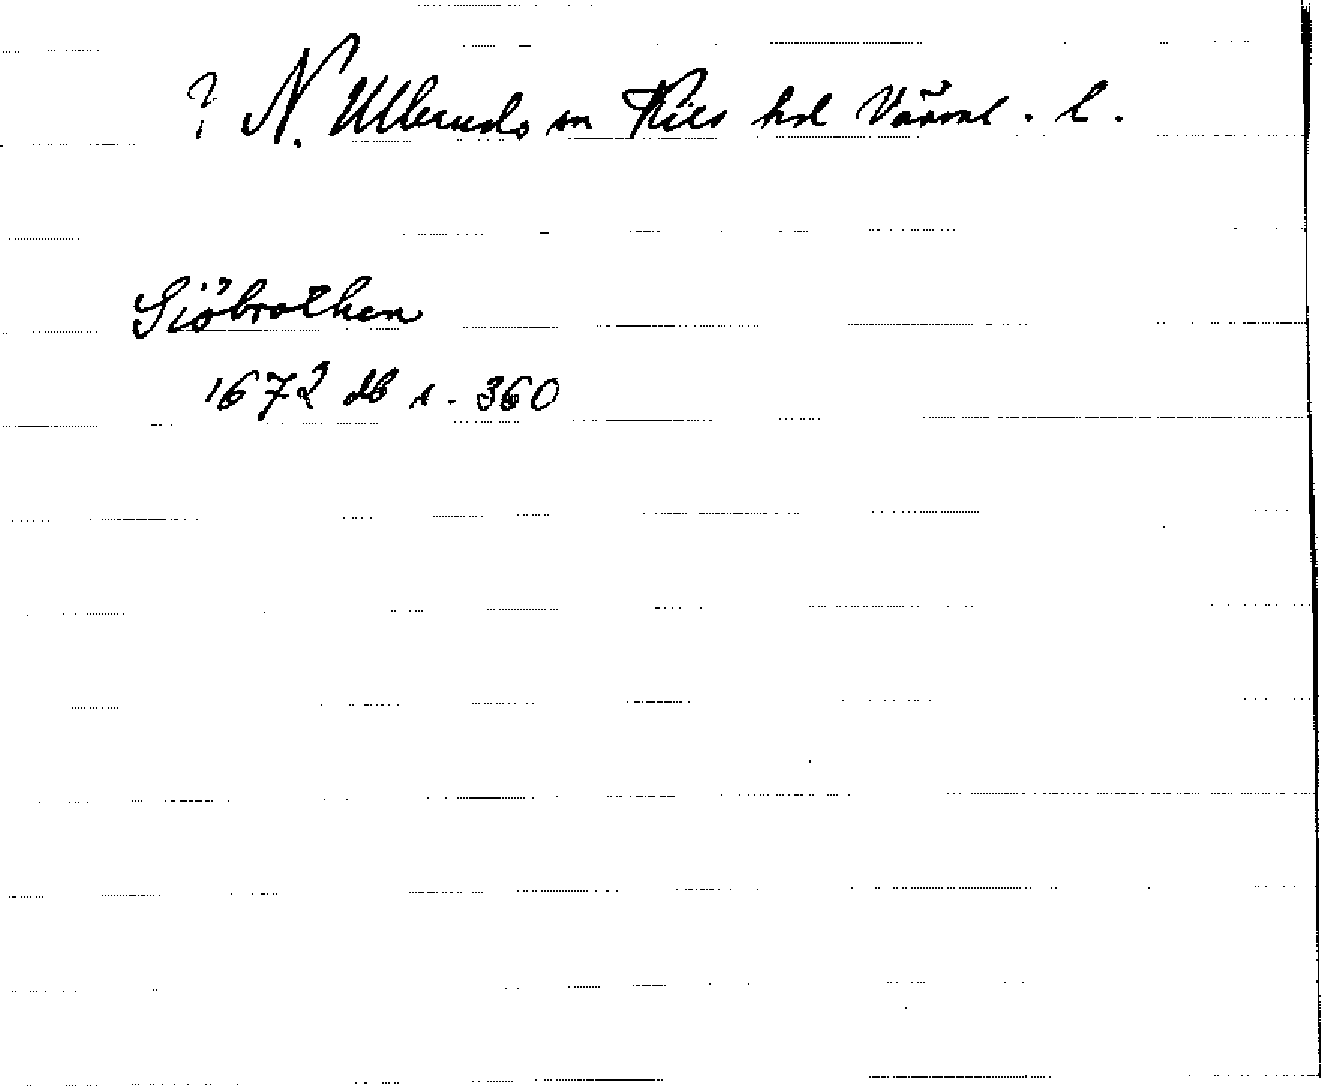 ? N. Ullerud sn Kils hd Värml. l.
Siöbrothen
1672 db s. 360